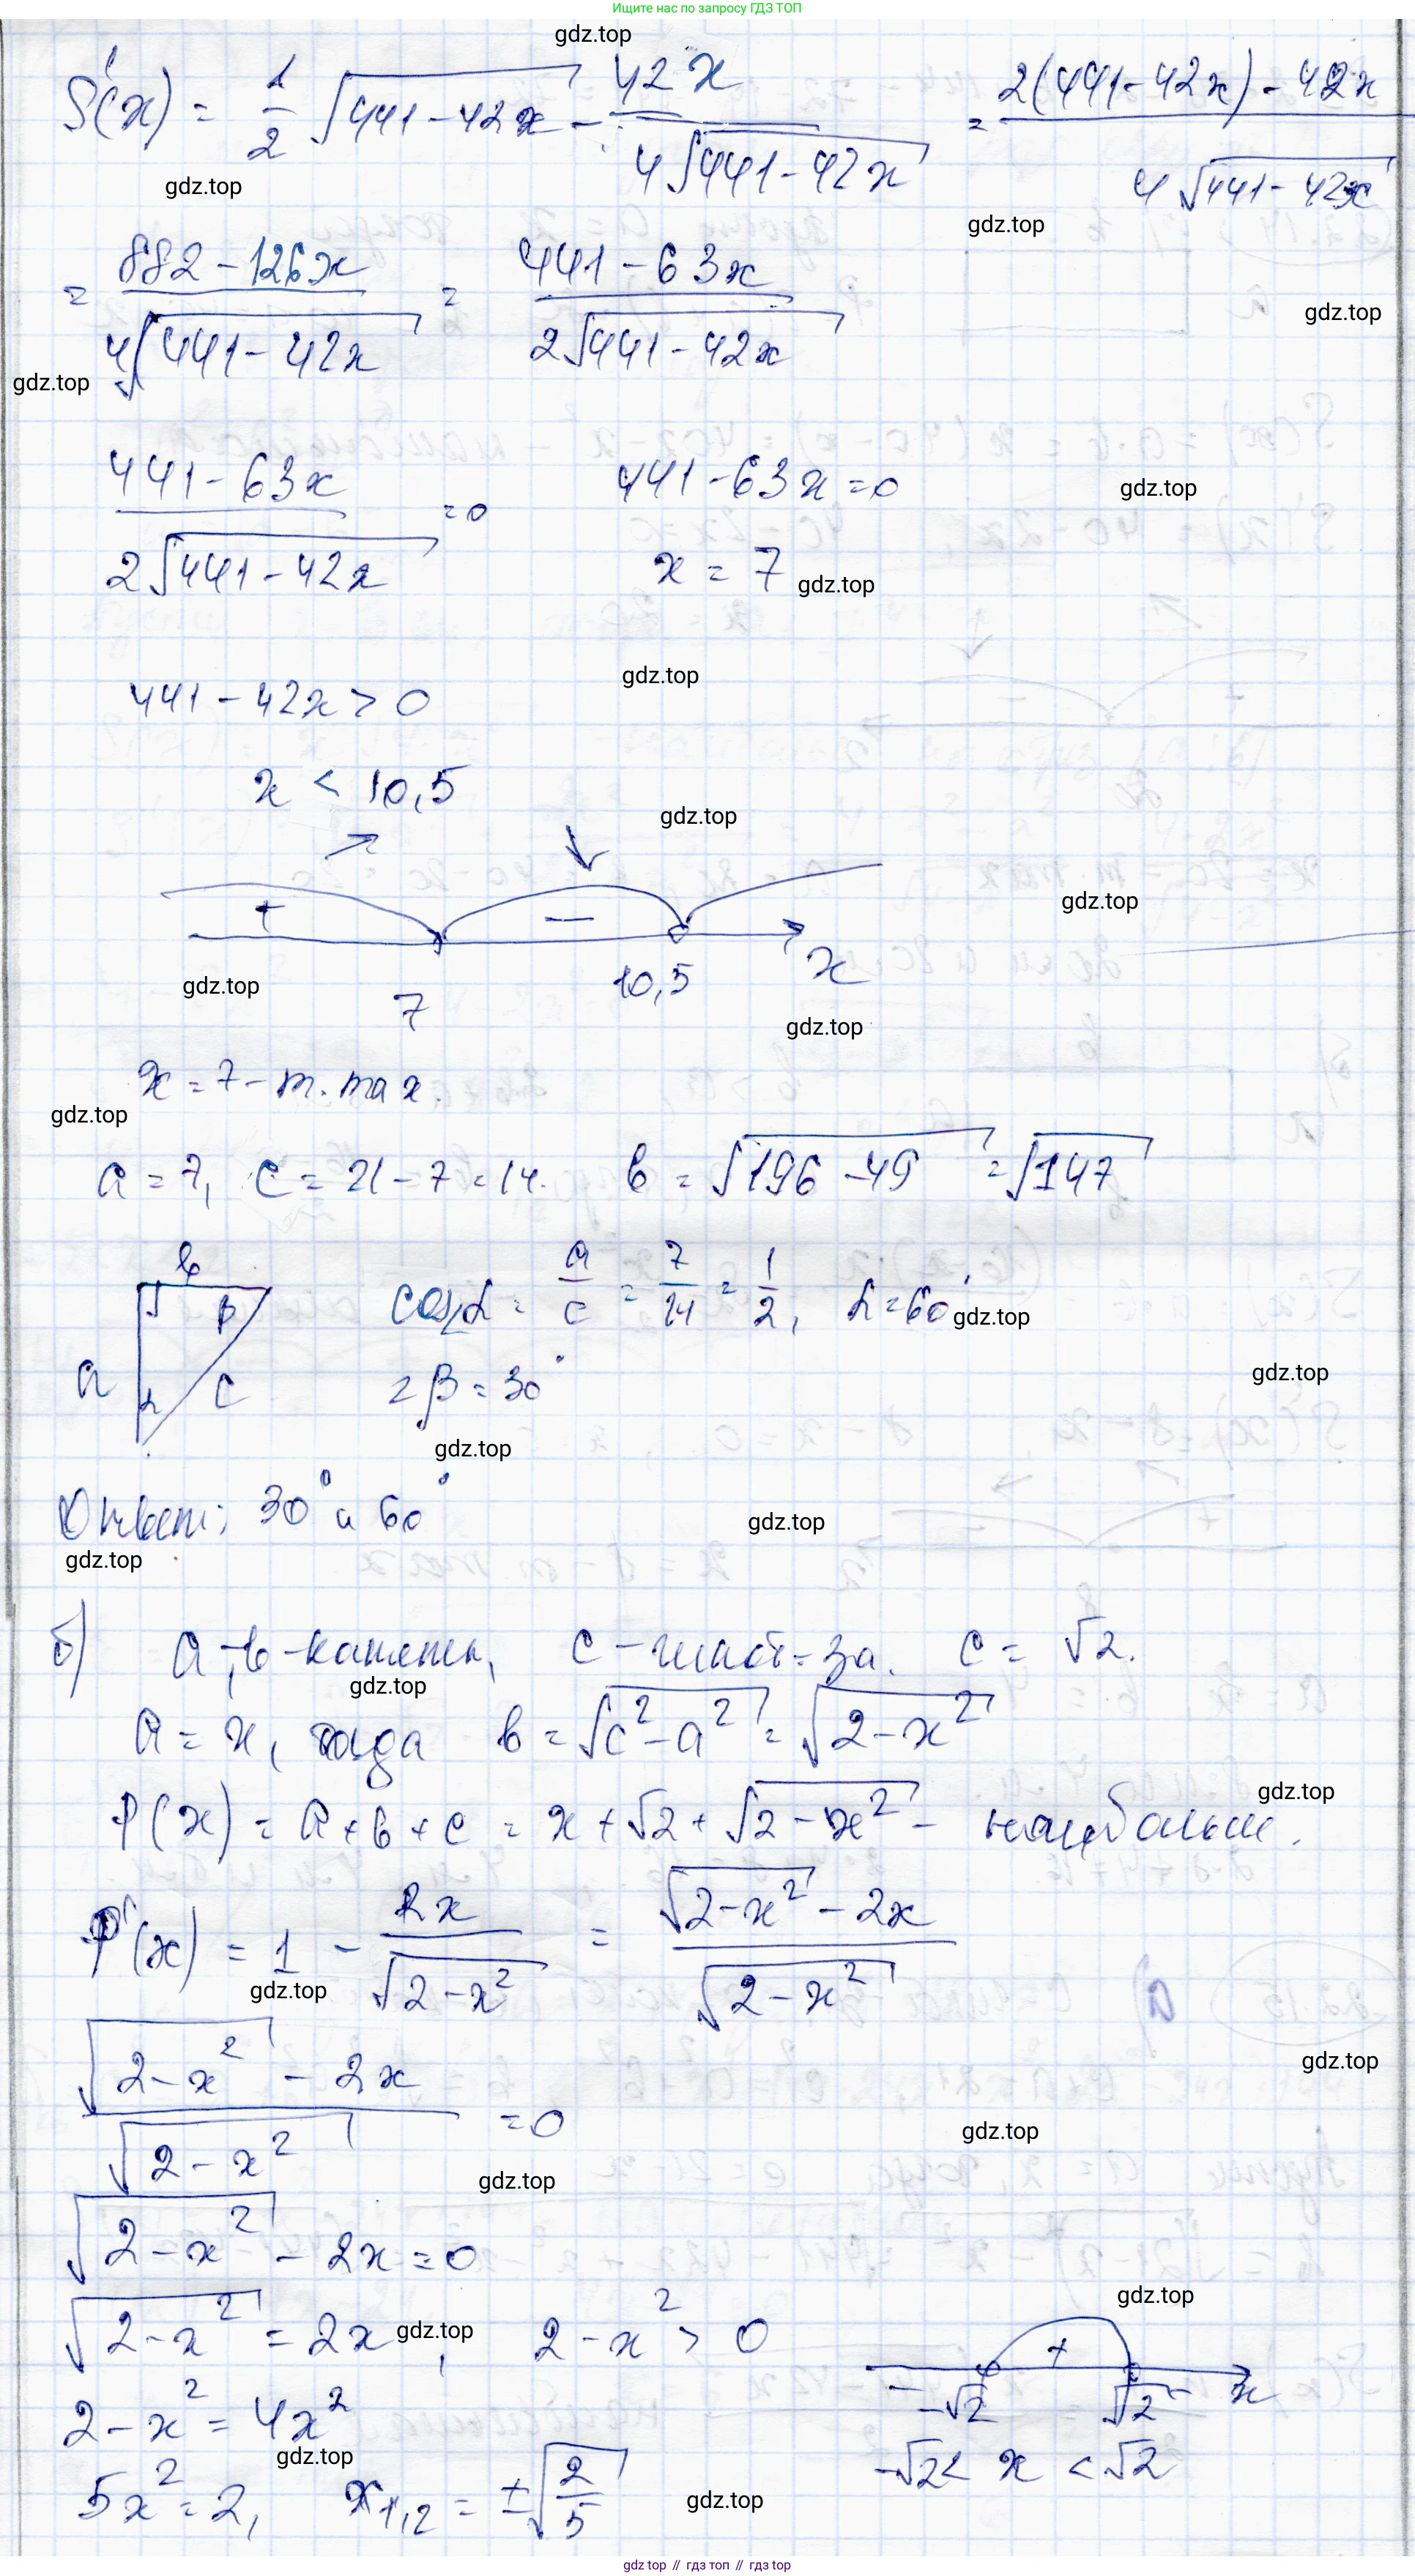 Ищите нас по запросу ГДЗ ТОП
gdz.top
S'(x) = 1/2 √(441-42x) - 42x/(4√(441-42x)) = (2(441-42x)-42x)/(4√(441-42x))
gdz.top
gdz.top
= (882-126x)/(4√(441-42x)) = (441-63x)/(2√(441-42x))
gdz.top
gdz.top
(441-63x)/(2√(441-42x)) = 0 441-63x=0
gdz.top
x = 7 gdz.top
gdz.top
441-42x > 0
x < 10,5
gdz.top
+ −
gdz.top
7 10,5 x
gdz.top
gdz.top
x = 7 - т. max.
gdz.top
a = 7, c = 21-7=14. b = √(196-49) = √147
b
β
a α c
cos∠α = a/c = 7/14 = 1/2, α=60° gdz.top
∠β = 30°
gdz.top
gdz.top
Ответ: 30° и 60°
gdz.top
gdz.top
б) a, b - катеты, c - гипот-за. c = √2.
gdz.top
a = x, тогда b = √(c²-a²) = √(2-x²)
gdz.top
P(x) = a+b+c = x+√2+√(2-x²) - наибольш.
P'(x) = 1 - 2x/√(2-x²) = (√(2-x²)-2x)/√(2-x²)
gdz.top
(√(2-x²) - 2x)/√(2-x²) = 0
gdz.top
gdz.top
gdz.top
√(2-x²) - 2x = 0
gdz.top
√(2-x²) = 2x, 2-x² > 0
gdz.top
− + −
-√2 √2 x
2-x² = 4x²
gdz.top
-√2 < x < √2
5x² = 2, x₁,₂ = ±√(2/5)
gdz.top
gdz top // гдз топ // gdz.top